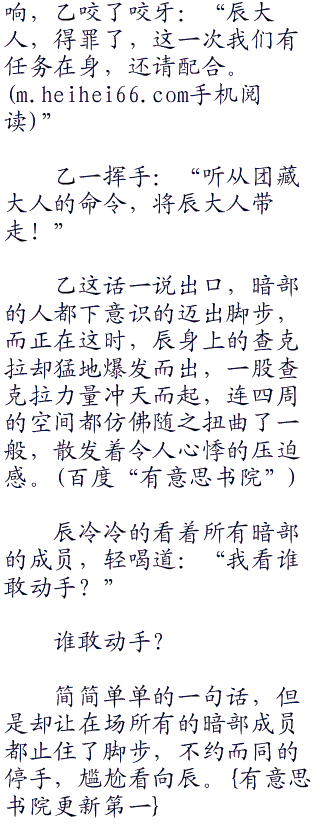 响，乙咬了咬牙：“辰大
人，得罪了，这一次我们有
任务在身，还请配合。
(m.heihei66.com手机阅
读)”
乙一挥手：“听从团藏
大人的命令，将辰大人带
走！”
乙这话一说出口，暗部
的人都下意识的迈出脚步，
而正在这时，辰身上的查克
拉却猛地爆发而出，一股查
克拉力量冲天而起，连四周
的空间都仿佛随之扭曲了一
般，散发着令人心悸的压迫
感。(百度“有意思书院”)
辰冷冷的看着所有暗部
的成员，轻喝道：“我看谁
敢动手？”
谁敢动手？
简简单单的一句话，但
是却让在场所有的暗部成员
都止住了脚步，不约而同的
停手，尴尬看向辰。{有意思
书院更新第一}